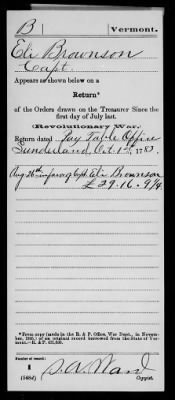 B | Vermont.
Eli Brownson
Capt.
Appears as shown below on a
Return*
of the Orders drawn on the Treasurer Since the
first day of July last.
(Revolutionary War.)
Return dated Pay Table Office
Sunderland, Oct. 1st, 1783.
Aug 26th in favor of Capt. Eli Brownson
£29.16.9/4
*From copy (made in the R. & P. Office, War Dept., in Novem-
ber, 1895,) of an original record borrowed from the State of Ver-
mont.—R. & P. 436,848.
Number of record:
1
S. A. Ward
(548d) Copyist.